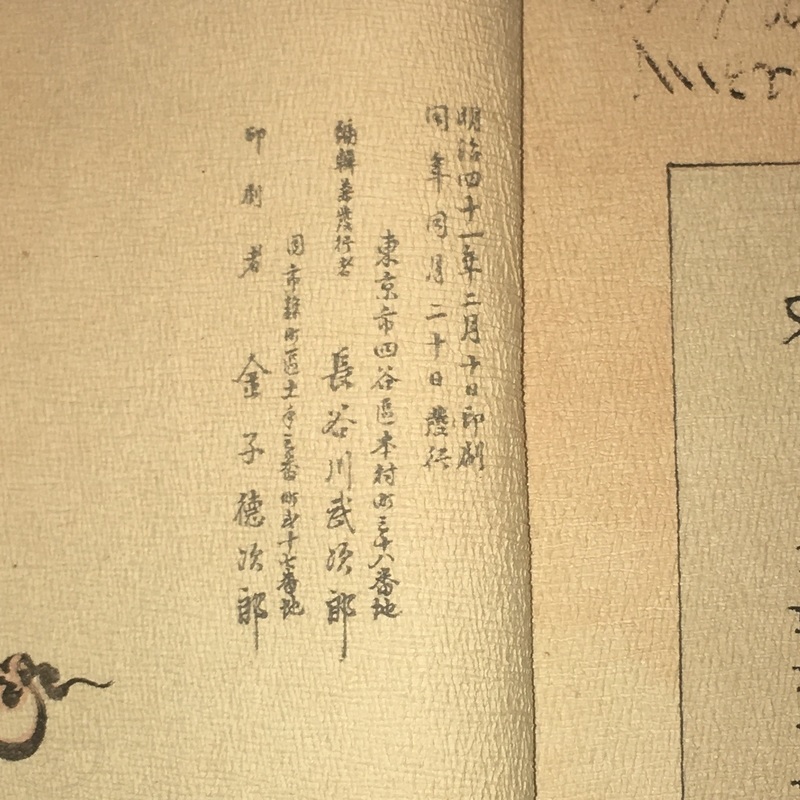 明治四十一年二月十日印刷
同年同月二十日發行
東京市四谷區本村町三十八番地
編輯兼發行者 長谷川武次郎
同市麹町區土手三番町弐十七番地
印刷者 金子德次郎